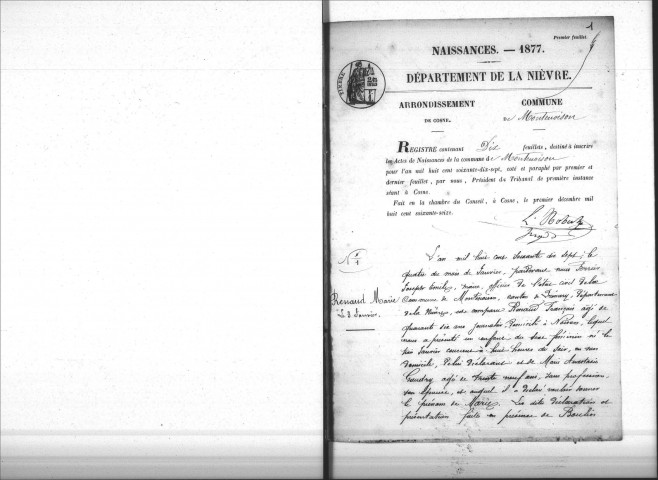 1
Premier feuillet
NAISSANCES. — 1877.
DÉPARTEMENT DE LA NIÈVRE.
ARRONDISSEMENT
DE COSNE.
COMMUNE
de Montenoison
REGISTRE contenant Dix feuillets, destiné à inscrire
les Actes de Naissances de la commune de Montenoison
pour l'an mil huit cent soixante-dix-sept, coté et paraphé par premier et
dernier feuillet, par nous, Président du Tribunal de première instance
séant à Cosne.
Fait en la chambre du Conseil, à Cosne, le premier décembre mil
huit cent soixante-seize.
N° 1
Renaud Marie
Le 3 Janvier.
L'an mil huit cent soixante dix sept, le
quatre du mois de Janvier, pardevant nous
Joseph Emile, maire, officier de l'état civil de la
Commune de Montenoison, canton de Prémery, département
de la Nièvre, est comparu Renaud François âgé de
quarante six ans journalier, domicilié à Noison, lequel
nous a présenté un enfant du sexe féminin né le
trois Janvier courant à huit heures du soir, en son
domicile, de lui déclarant et de Marie Anastasie
Gaudry âgée de trente neuf ans, sans profession,
son épouse, et auquel il a déclaré vouloir donner
le prénom de Marie. Les dites déclaration et
présentation faites en présence de